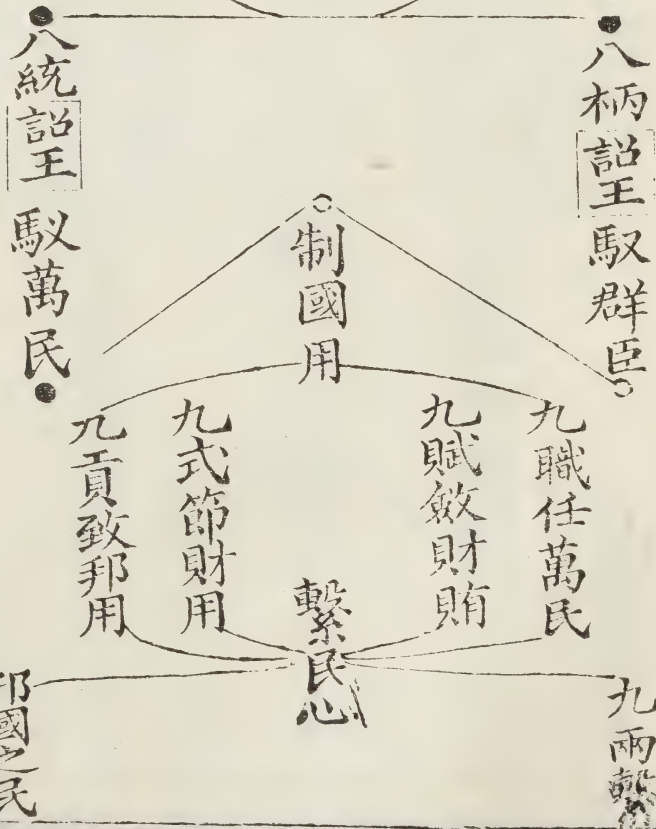 八柄詔王馭群臣
制國用
八統詔王馭萬民
九職任萬民
九賦斂財賄
九式節財用
九貢致邦用
繫民心
九兩繫
邦國之民